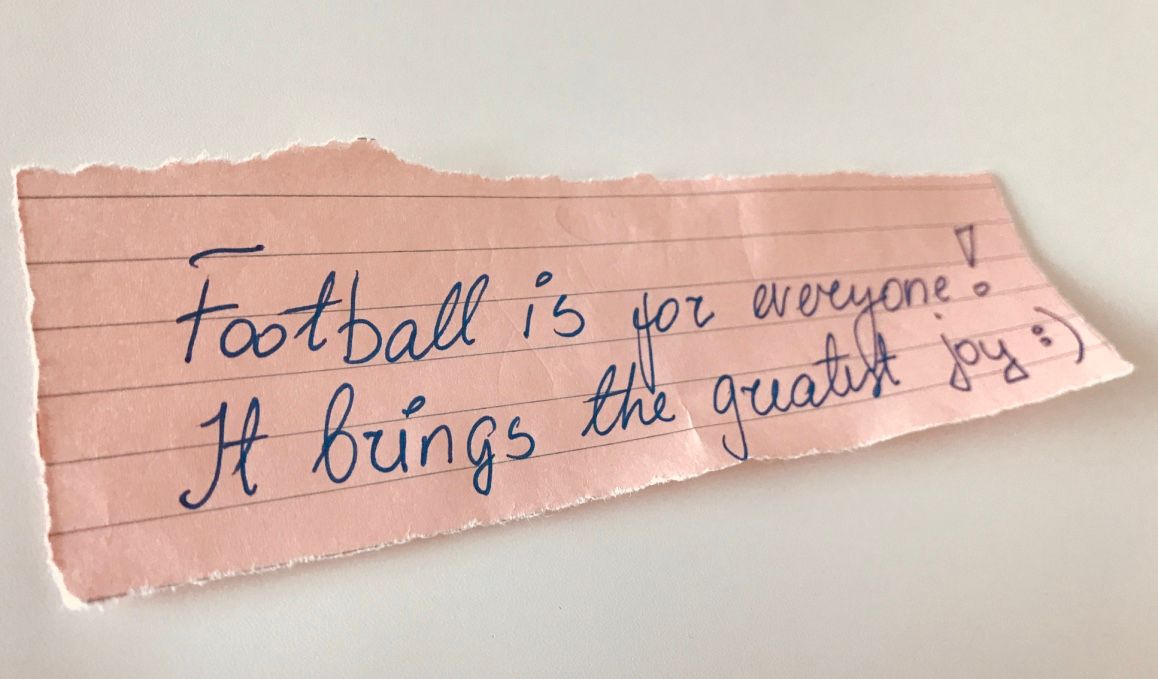 Football is for everyone!
It brings the greatest joy :)